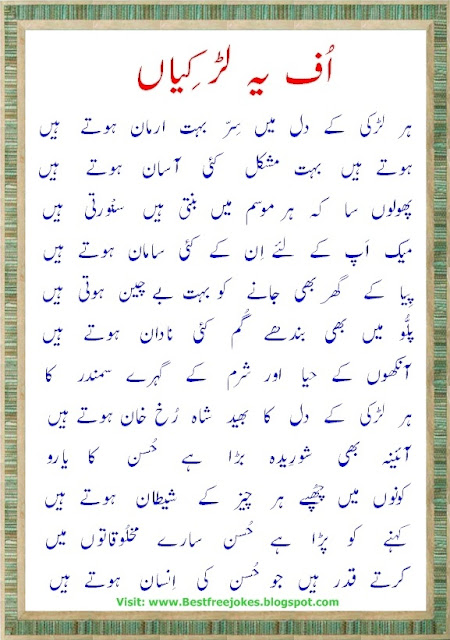 اُف یہ لڑکِیاں
ہر لڑکی کے دل میں سِرّ بہت ارمان ہوتے ہیں
ہوتے ہیں بہت مشکل کئی آسان ہوتے ہیں
پھولوں سا کہ ہر موسم میں بنتی ہیں سنْورتی ہیں
میک اَپ کے لئے اِن کے کئی سامان ہوتے ہیں
پیا کے گھر بھی جانے کو بہت بے چین ہوتی ہیں
پلُّو میں بھی بندھے گُم کئی نادان ہوتے ہیں
آنکھوں کے حیا اور شرم کے گہرے سمندر کا
ہر لڑکی کے دل کا بھید شاہ رُخ خان ہوتے ہیں
آئینہ بھی شوریدہ بڑا ہے حُسن کا یارو
کونوں میں چھُپے ہر چیز کے شیطان ہوتے ہیں
کہنے کو پڑا ہے حُسن سارے مخلُوقاتوں میں
کرتے قدر ہیں جو حُسن کی اِنسان ہوتے ہیں
Visit: www.Bestfreejokes.blogspot.com